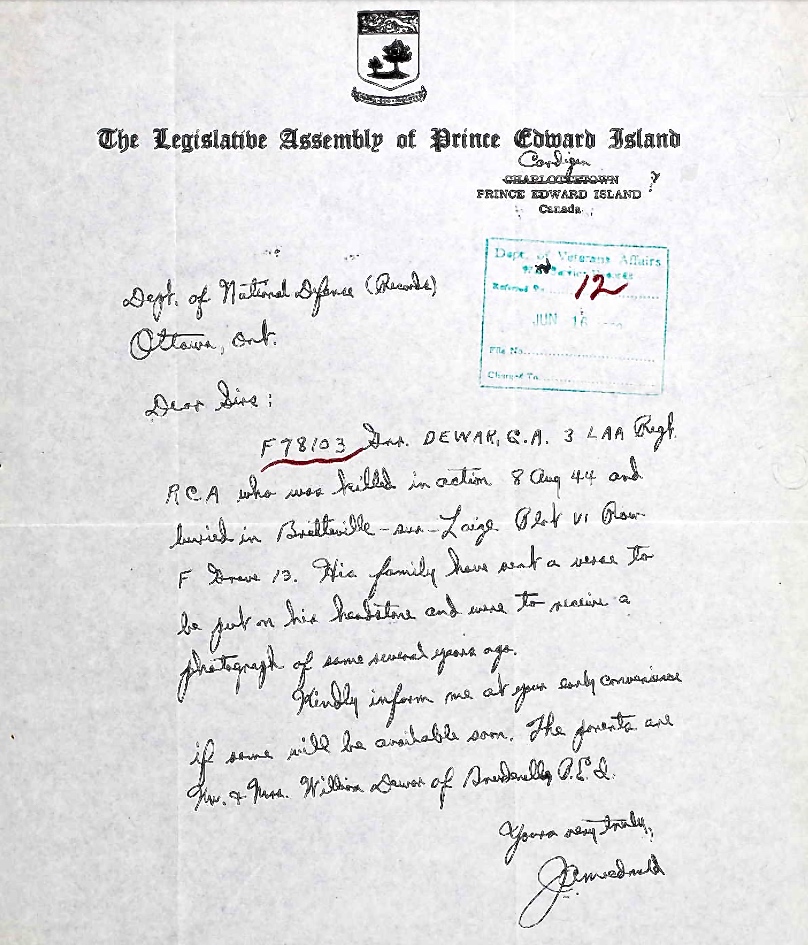 The Legislative Assembly of Prince Edward Island
Cardigan
CHARLOTTETOWN
PRINCE EDWARD ISLAND
Canada
Dept. of Veterans Affairs
Referred To 12
JUN 16
File No.
Charged To
Dept. of National Defence (Records)
Ottawa, Ont.
Dear Sirs:
F78103 Gnr. DEWAR, G.A. 3 LAA Regt.
RCA who was killed in action 8 Aug 44 and
buried in Bretteville-sur-Laize Plot VI Row
F Grave 13. His family have sent a verse to
be put on his headstone and were to receive a
photograph of same several years ago.
Kindly inform me at your early convenience
if same will be available soon. The parents are
Mr. & Mrs. William Dewar of P.E.I.
Yours very truly,